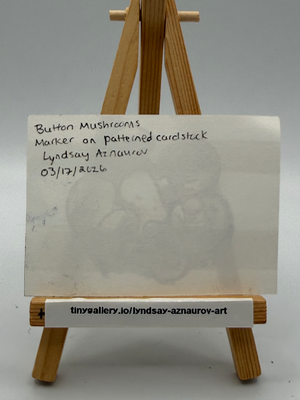 Button Mushrooms
Marker on patterned cardstock
Lyndsay Aznaurov
03/17/2026
tinygallery.io/lyndsay-aznaurov-art